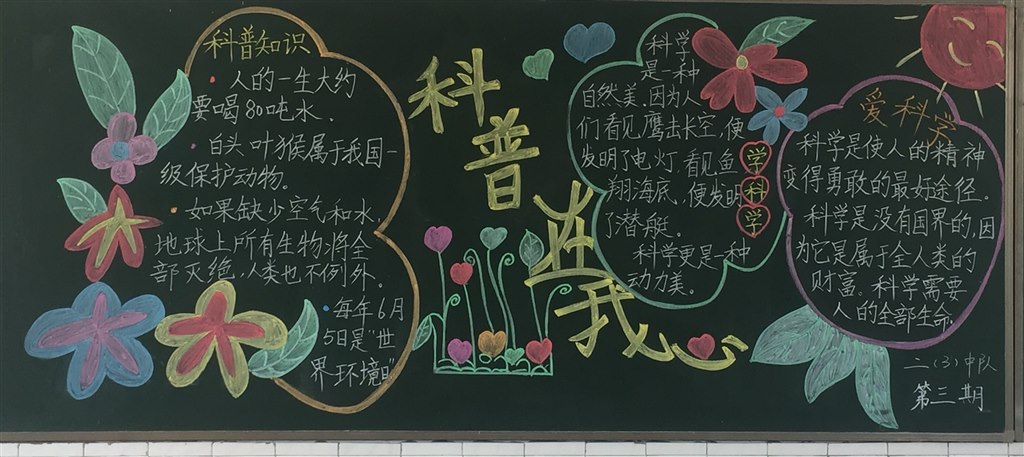 科普知识
人的一生大约
要喝80吨水.
白头叶猴属于我国一
级保护动物。
如果缺少空气和水,
地球上所有生物将全
部灭绝,人类也不例外.
每年6月
5日是"世
界环境日"
科普在我心
科学
是一种
自然美.因为人
们看见鹰击长空,便
发明了电灯.看见鱼
翔海底,便发明
了潜艇.
科学更是一种
动力美.
学科学
爱科学
科学是使人的精神
变得勇敢的最好途径.
科学是没有国界的,因
为它是属于全人类的
财富.科学需要
人的全部生命.
二(3)中队
第三期